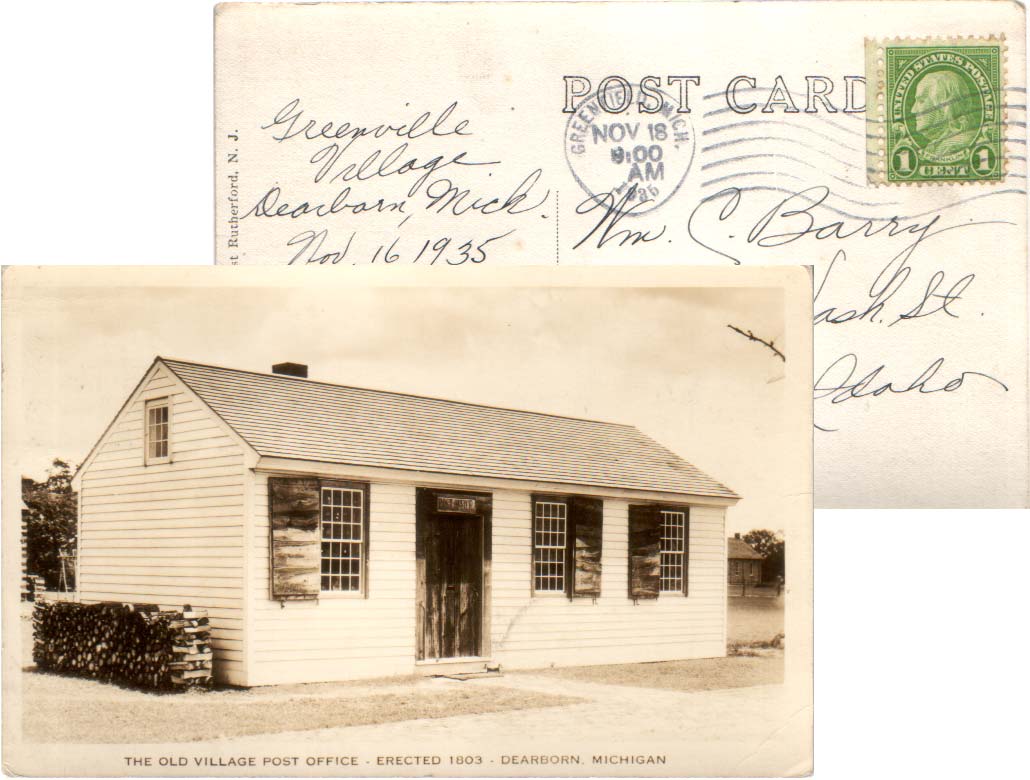 POST CARD
UNITED STATES POSTAGE
FRANKLIN
1 CENT 1
GREENFIELD, MICH.
NOV 18
9:00
AM
1935
st Rutherford, N. J.
Greenville
Village
Dearborn, Mick.
Nov. 16 1935
Wm. C. Barry
Wash. St.
Idaho
POST OFFICE
THE OLD VILLAGE POST OFFICE - ERECTED 1803 - DEARBORN, MICHIGAN